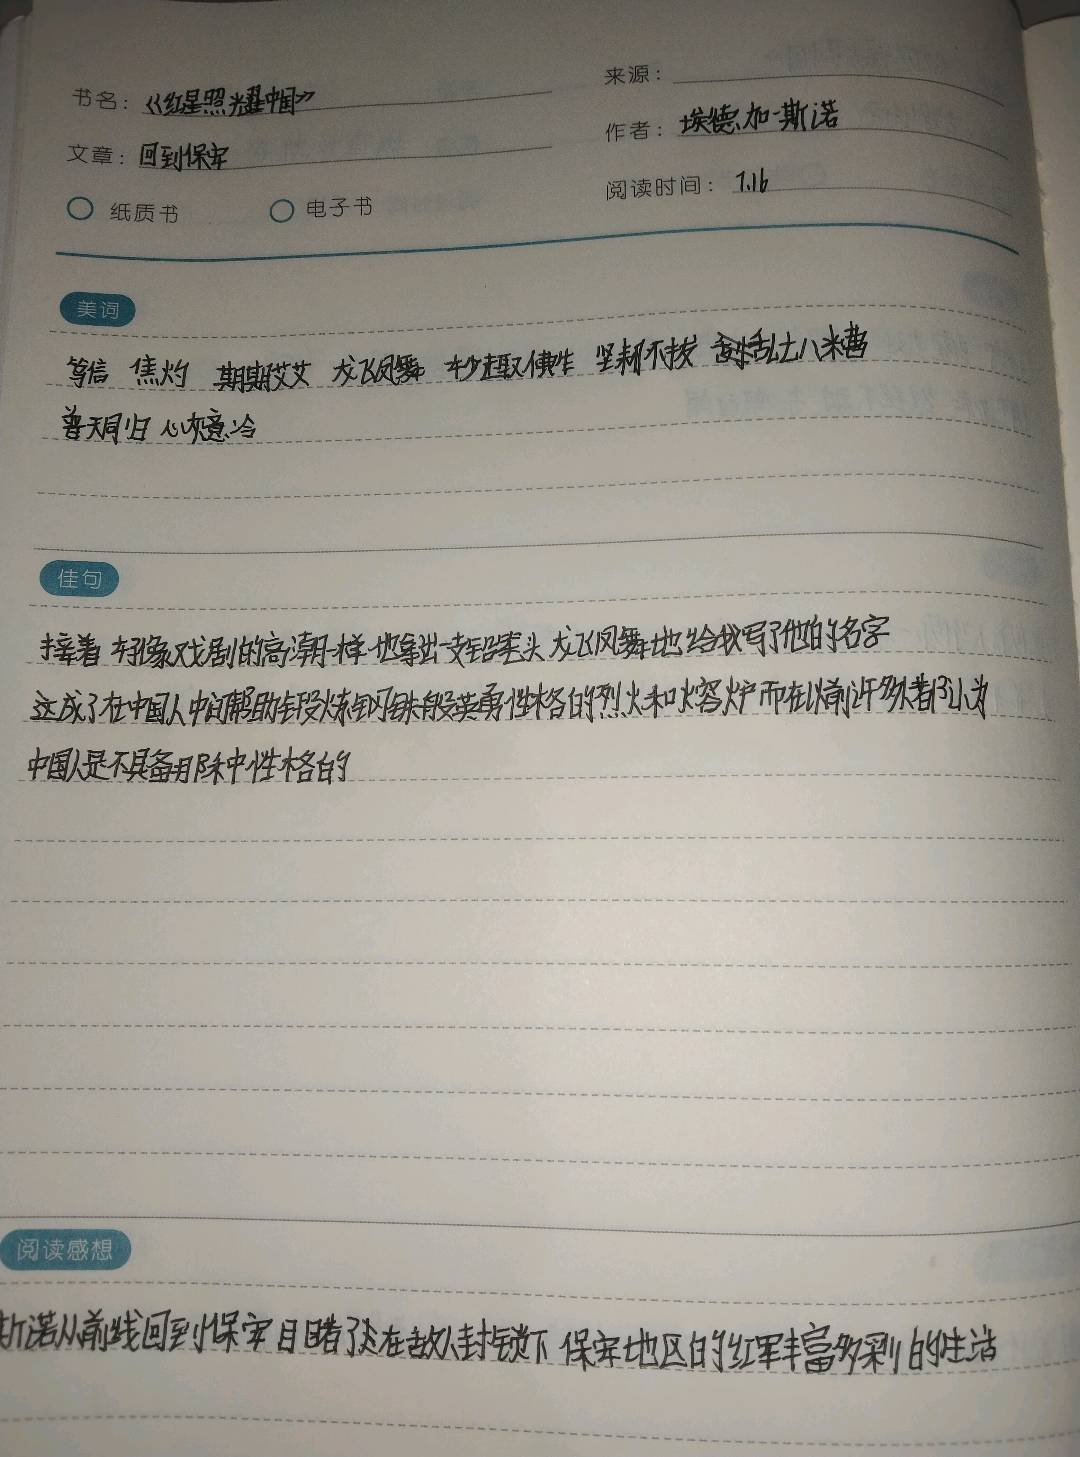 书名：《红星照耀中国》
来源：
文章：回到保安
作者：埃德加·斯诺
纸质书 电子书
阅读时间：7.16
美词
笃信 焦灼 期期艾艾 龙飞凤舞 吵赵取佛作 坚韧不拔 乱七八糟
普天同归 心灰意冷
佳句
接着 好像戏剧的高潮一样 他拿出一支铅笔头 龙飞凤舞地给我写了他的名字
这成了在中国人中间帮助锻炼钢铁般英勇性格的烈火和熔炉 而在以前许多人都认为
中国人是不具备那种性格的
阅读感想
斯诺从前线回到保安 目睹了处在敌人封锁下 保安地区的红军丰富多彩的生活